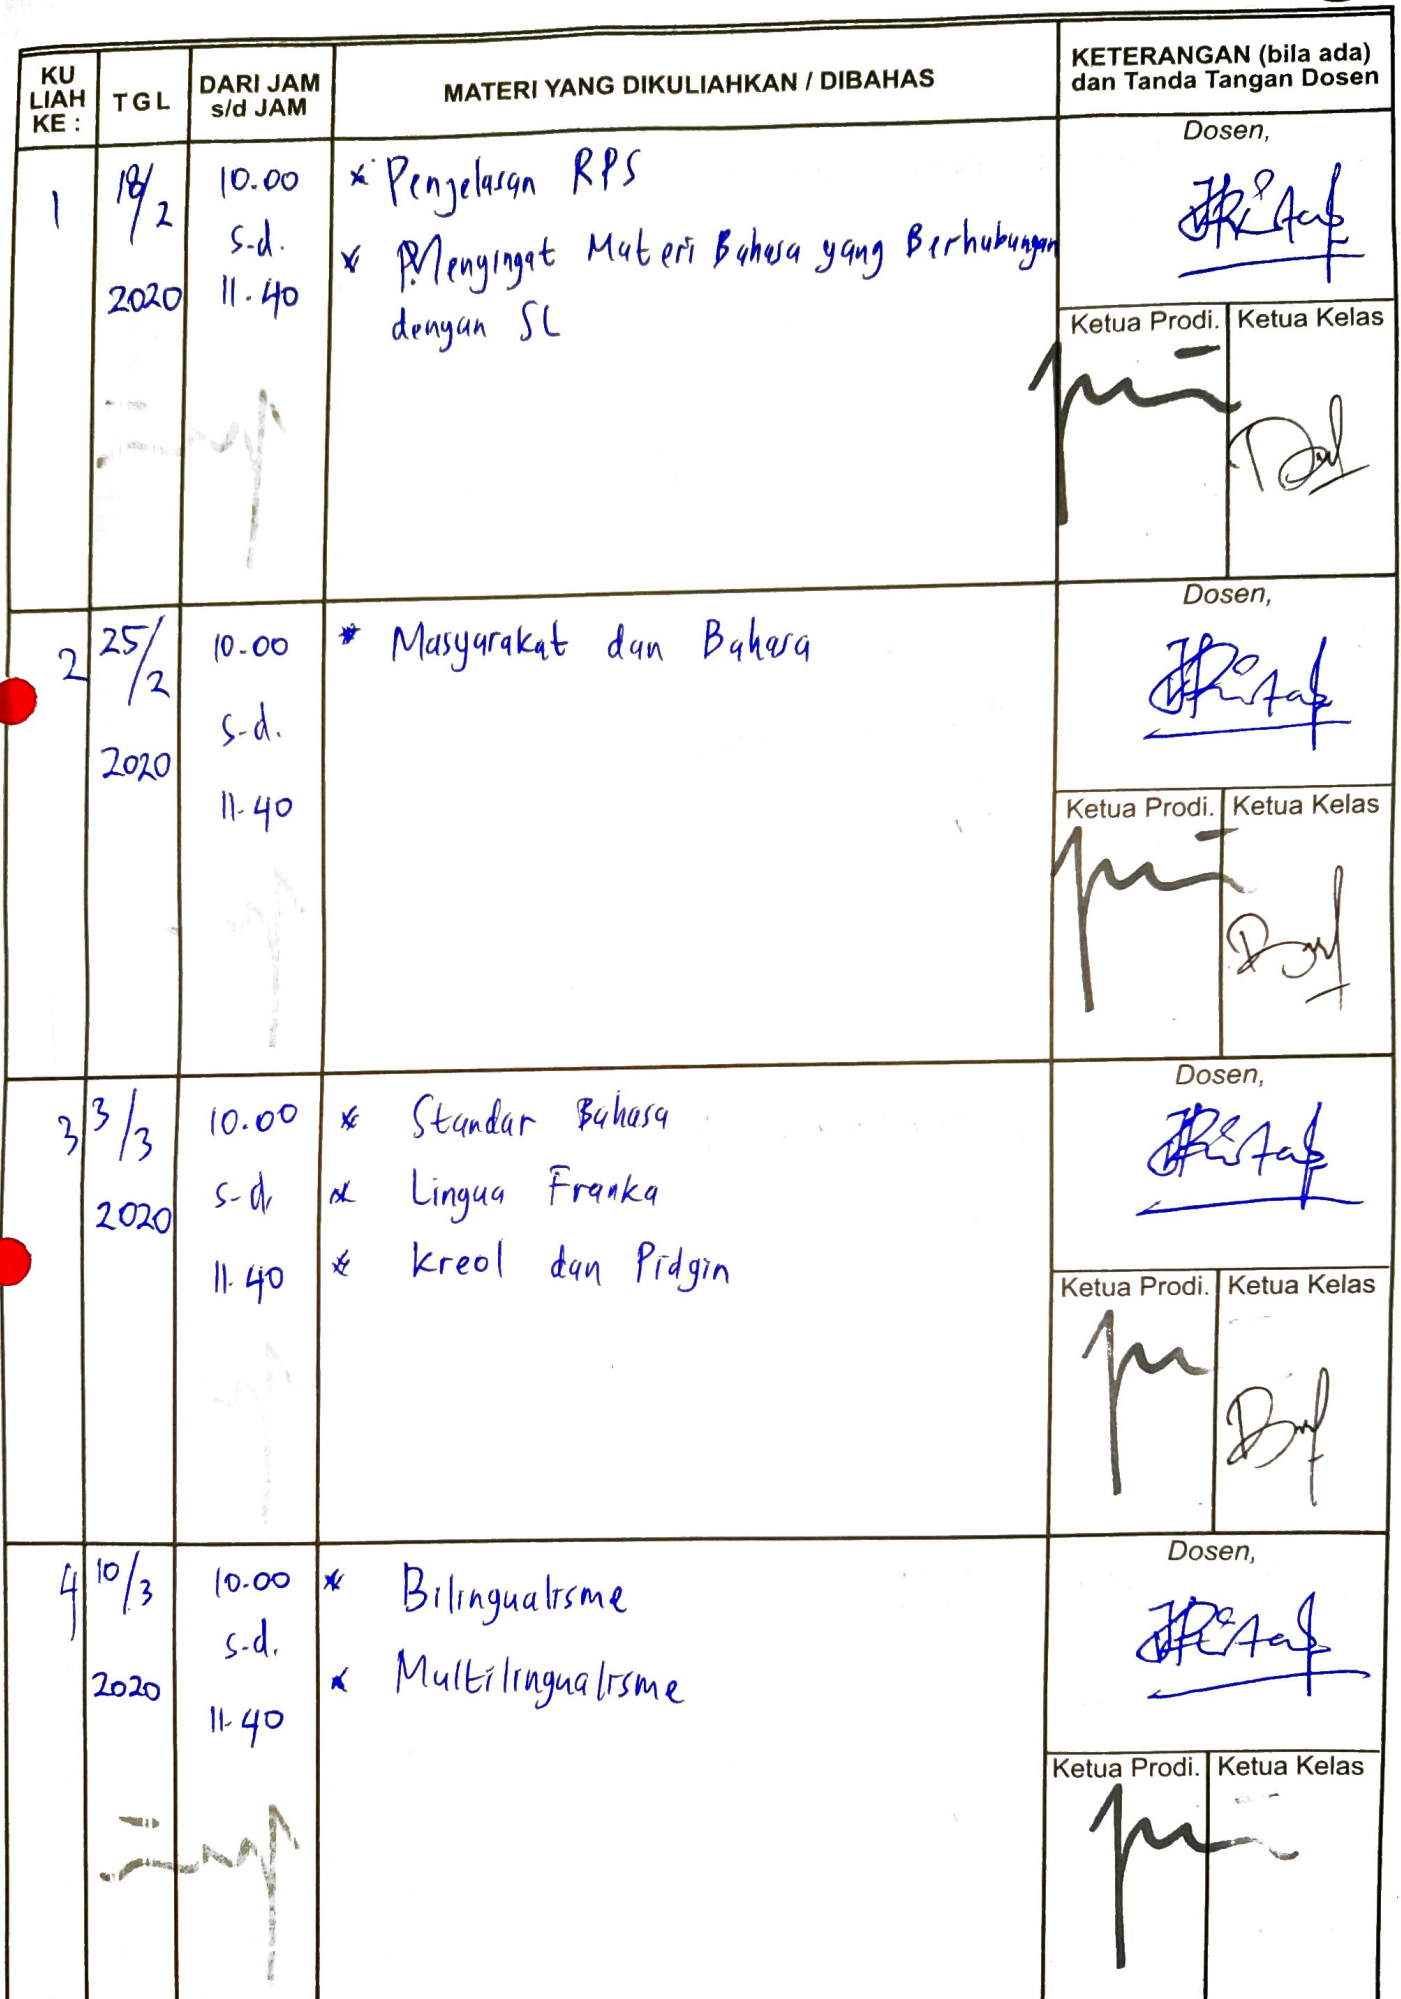 KU LIAH KE :
TGL
DARI JAM s/d JAM
MATERI YANG DIKULIAHKAN / DIBAHAS
KETERANGAN (bila ada) dan Tanda Tangan Dosen
1
18/2
2020
10.00
s.d.
11.40
* Penjelasan RPS
* Mengingat Materi Bahasa yang Berhubungan
dengan SL
Dosen,
Ketua Prodi.
Ketua Kelas
2
25/2
2020
10.00
s.d.
11.40
* Masyarakat dan Bahasa
Dosen,
Ketua Prodi.
Ketua Kelas
3
3/3
2020
10.00
s.d.
11.40
* Standar Bahasa
* Lingua Franka
* Kreol dan Pidgin
Dosen,
Ketua Prodi.
Ketua Kelas
4
10/3
2020
10.00
s.d.
11.40
* Bilingualisme
* Multilingualisme
Dosen,
Ketua Prodi.
Ketua Kelas